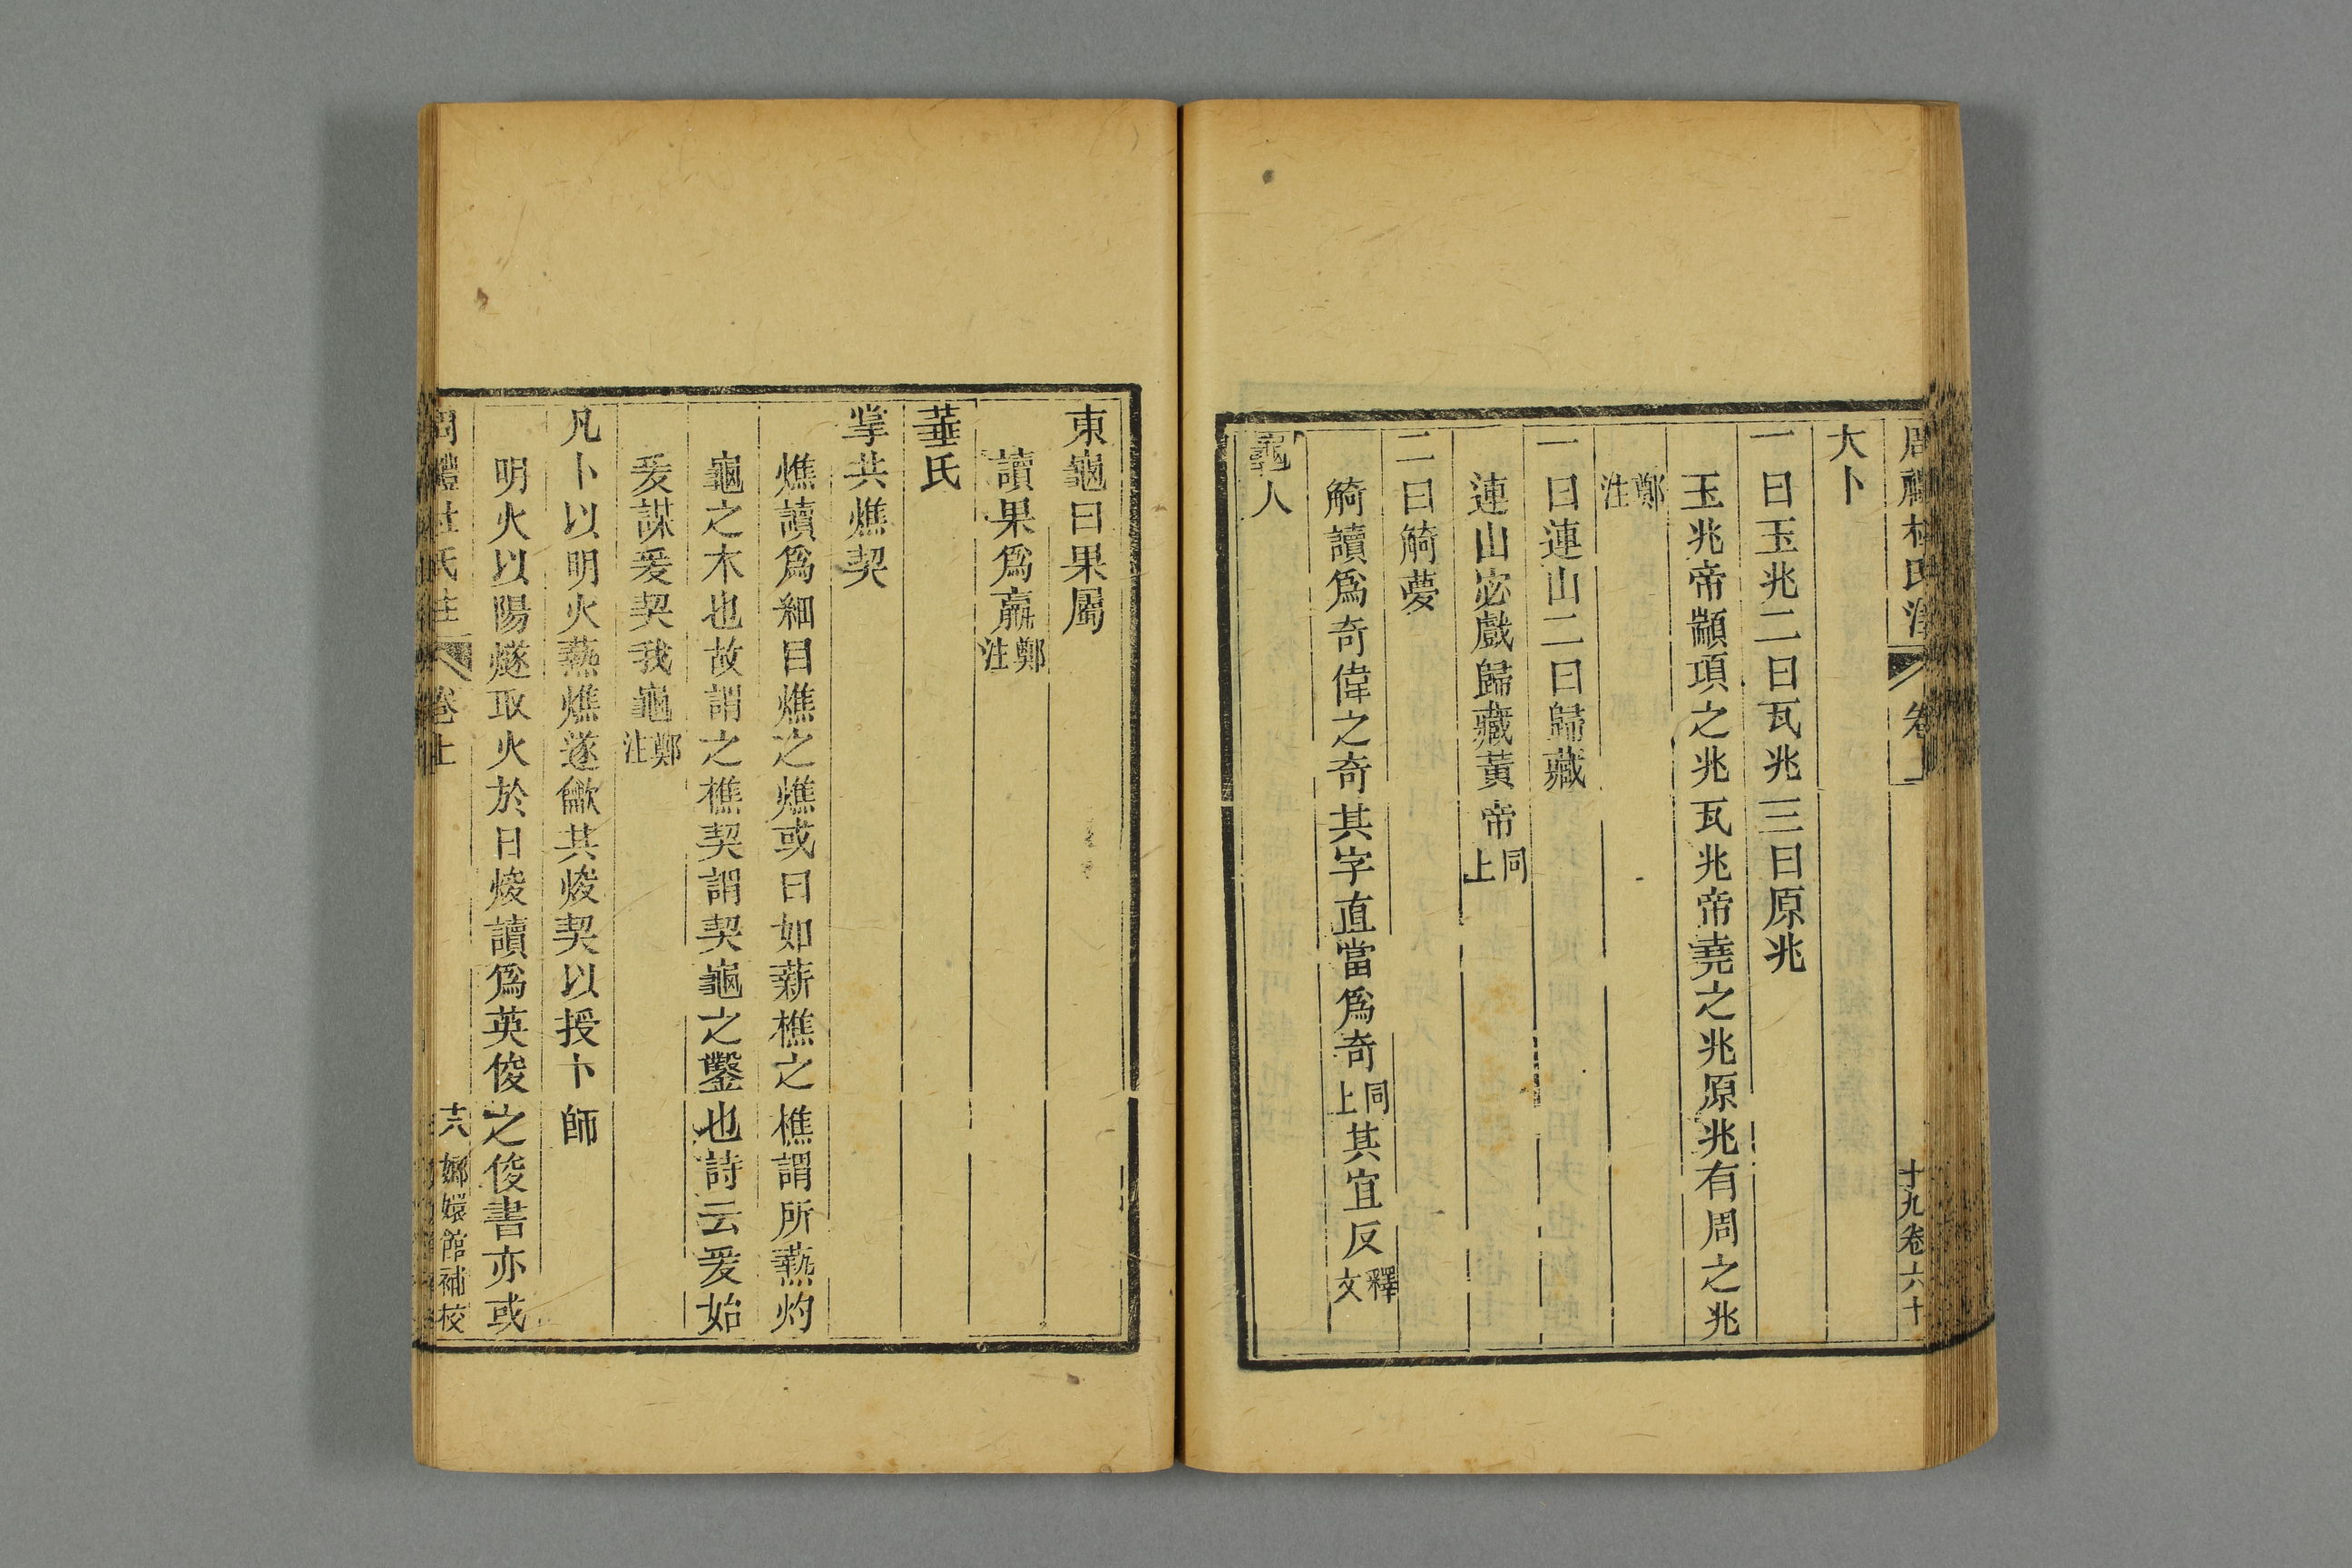 周禮杜氏注 卷上 十九卷六十
大卜
一曰玉兆二曰瓦兆三曰原兆
玉兆帝顓頊之兆瓦兆帝堯之兆原兆有周之兆
鄭注
一曰連山二曰歸藏
連山宓戲歸藏黃帝同上
二曰觭夢
觭讀爲奇偉之奇其字直當爲奇同上其宜反釋文
龜人
東龜曰果屬
讀果爲蠃鄭注
菙氏
掌共燋契
燋讀爲細目燋之燋或曰如薪樵之樵謂所爇灼
龜之木也故謂之樵契謂契龜之鑿也詩云爰始
爰謀爰契我龜鄭注
凡卜以明火爇燋遂龡其焌契以授卜師
明火以陽燧取火於日焌讀爲英俊之俊書亦或
周禮杜氏注 卷上 十六 嫏嬛館補校